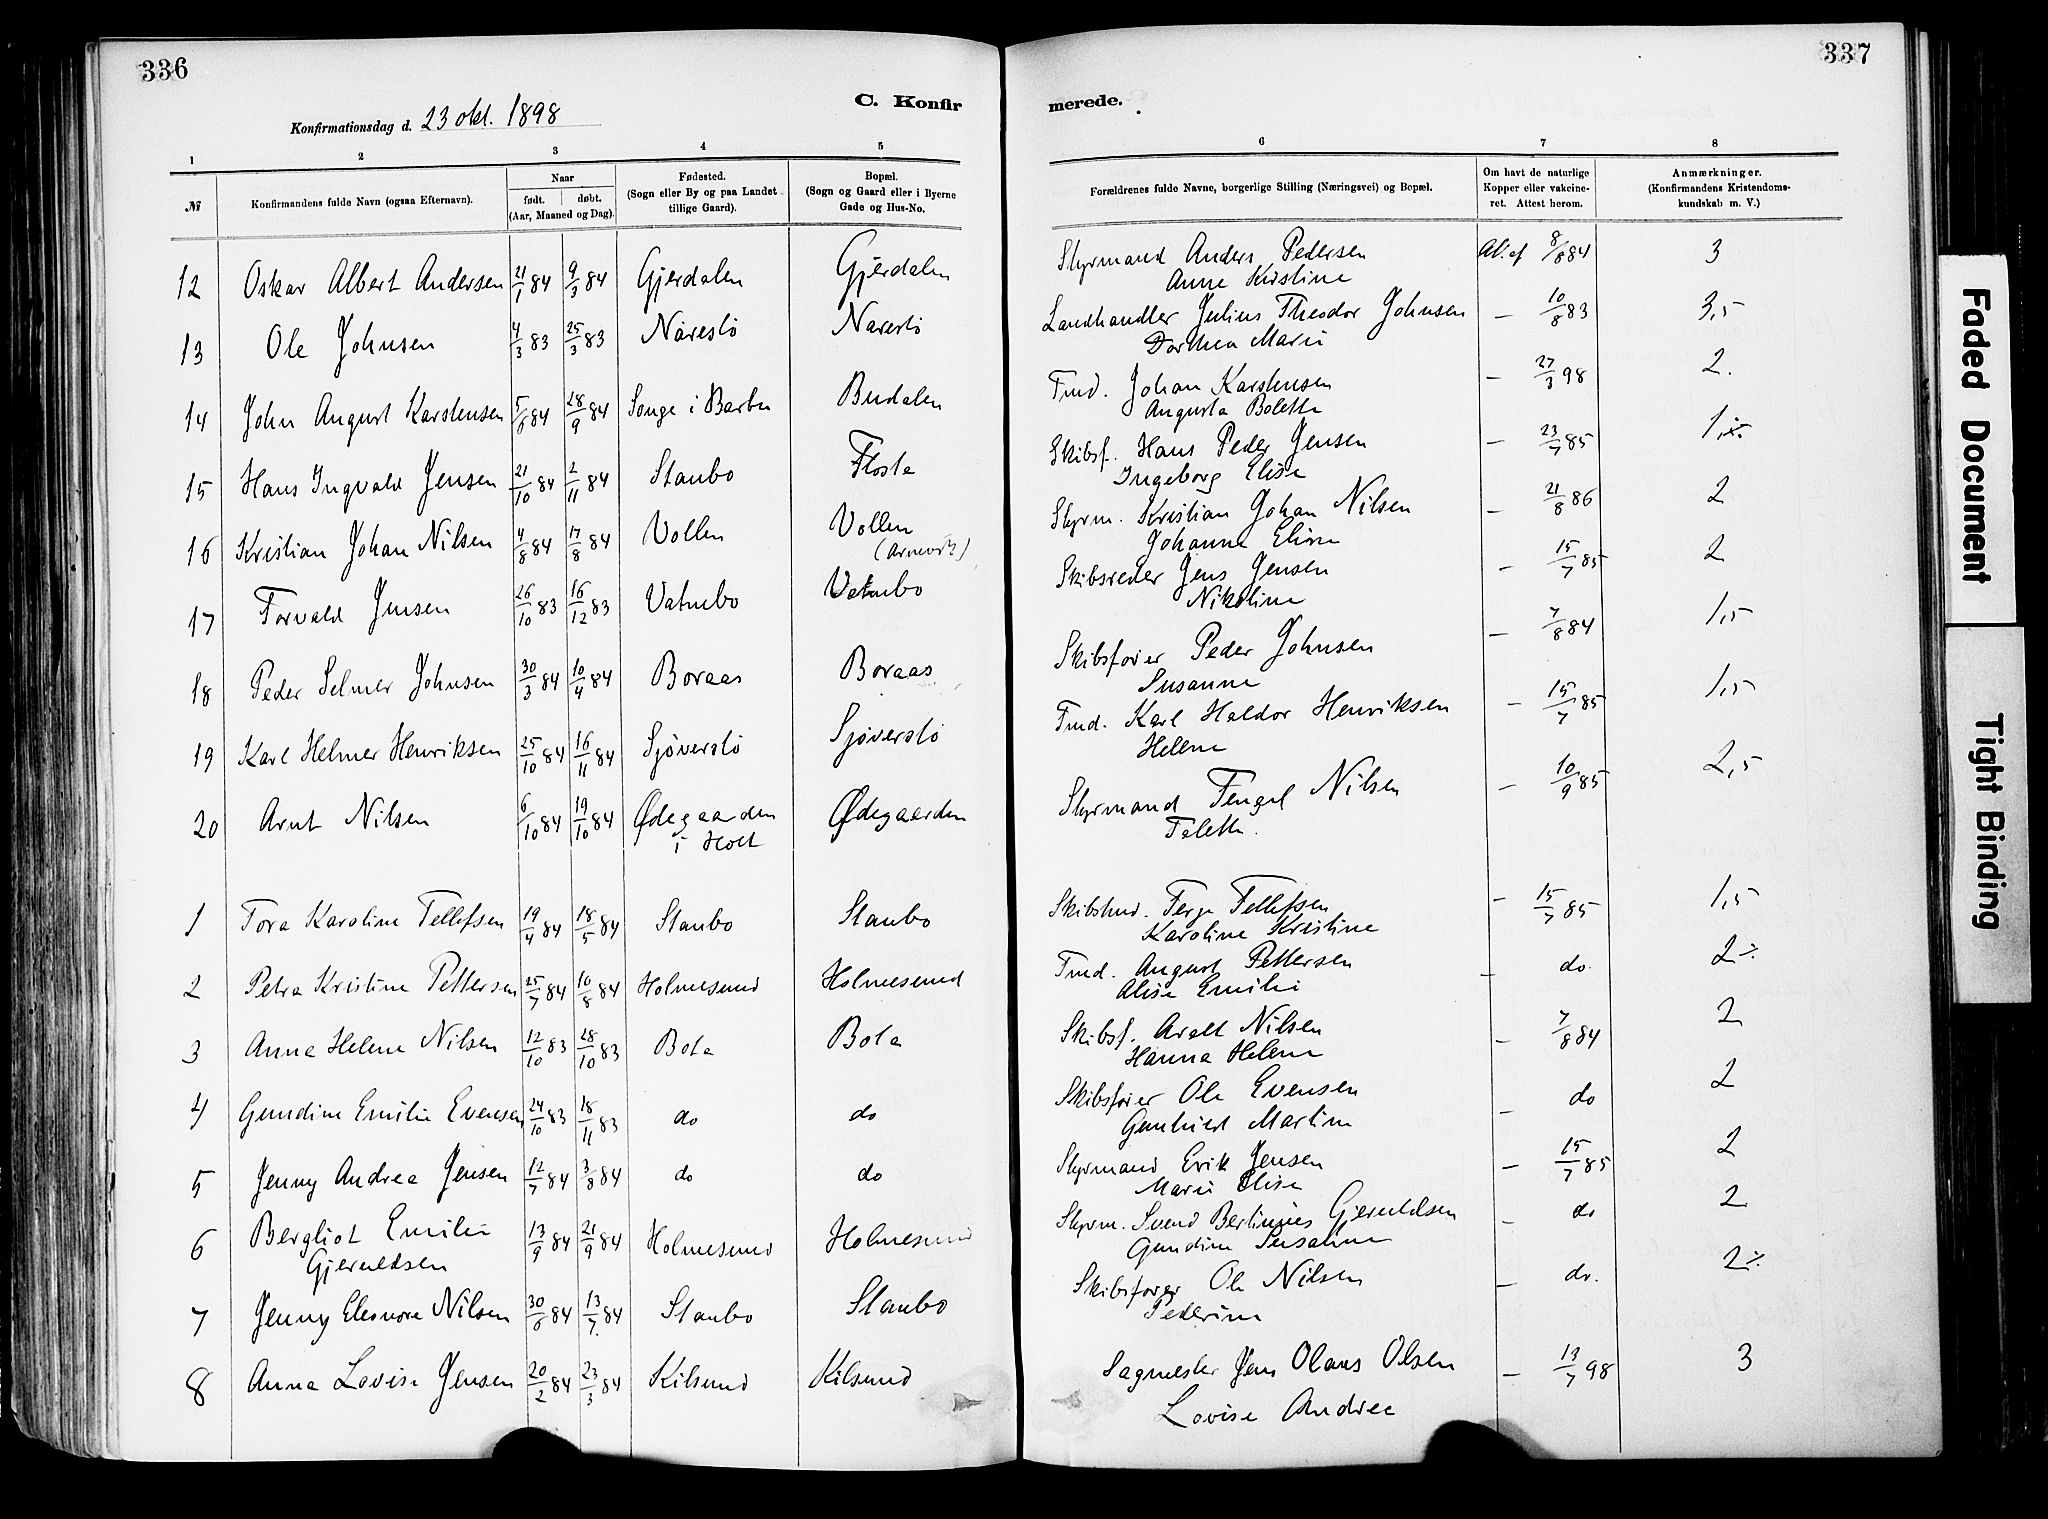 336
337
C. Konfir
merede.
Konfirmationsdag d. 23 okt. 1898
1 2 3 4 5 6 7 8
№ Konfirmandens fulde Navn (ogsaa Efternavn). Naar født. døbt. (Aar, Maaned og Dag). Fødested. (Sogn eller By og paa Landet tillige Gaard). Bopæl. (Sogn og Gaard eller i Byerne Gade og Hus-No. Forældrenes fulde Navne, borgerlige Stilling (Næringsvei) og Bopæl. Om havt de naturlige Kopper eller vakcineret. Attest herom. Anmærkninger. (Konfirmandens Kristendomskundskab m. V.)
12 Oskar Albert Andersen 21/1 84 9/3 84 Gjerdalen Gjerdalen Styrmand Anders Pedersen At. af 8/8 84 3
Anne Kristine
13 Ole Johnsen 4/3 83 25/3 83 Narestö Narestö Landhandler Julius Theodor Johnsen – 10/8 83 3,5
Dorthea Marie
14 John August Karstensen 5/8 84 28/9 84 Songe i Barbu Budalen Tmd. Johan Karstensen – 27/3 98 2.
Augusta Bolette
15 Hans Ingvald Jensen 21/10 84 2/11 84 Staubo Flosta Skibsf. Hans Peder Jensen – 23/7 85
Ingeborg Elise
16 Kristian Johan Nilsen 4/8 84 17/8 84 Vollen Vollen Styrm. Kristian Johan Nilsen – 21/8 86 2
Johanne Elise
17 Torvald Jensen 26/10 83 16/12 83 Vatnebo Vatnebo Skibsreder Jens Jensen – 15/7 85 2
Nikoline
18 Peder Selmer Johnsen 30/3 84 10/4 84 Boraas Boraas Skibsfører Peder Johnsen – 7/8 84 1,5
Susanne
19 Karl Helmer Henriksen 25/10 84 16/11 84 Sjöverstö Sjöverstö Tmd. Karl Haldor Henriksen – 15/7 85 1,5
Helene
20 Arnt Nilsen 6/10 84 19/10 84 Ødegaarden Ødegaarden Styrmand Tengel Nilsen – 10/9 85 2,5
i Holt Talette.
1 Tora Karoline Tellefsen 19/4 84 18/5 84 Staubo Staubo Skibstmd. Terje Tellefsen – 15/7 85 1,5
Karoline Kristine
2 Petra Kristine Pettersen 25/7 84 10/8 84 Holmesund Holmesund Tmd. August Pettersen – do. 2⁒
Alise Emilie
3 Anna Helene Nilsen 12/10 83 28/10 83 Bota Bota Skibsf. Aralt Nilsen – 7/8 84 2
Hanna Helene
4 Gundine Emilie Evensen 24/10 83 18/11 83 do do Skibsfører Ole Evensen – do 2
Gunhild Martine
5 Jenny Andrea Jensen 12/7 84 3/8 84 do do Styrmand Erik Jensen – 15/7 85 2
Marie Elise
6 Bergliot Emilie 13/9 84 21/9 84 Holmesund Holmesund Styrm. Svend Bertinius Gjeruldsen – do 2
Gjeruldsen Gundine Susanne
7 Jenny Eleonore Nilsen 30/6 84 13/7 84 Staubo Staubo Skibsfører Ole Nilsen – do. 2⁒
Pederine
8 Anna Lovise Jensen 20/2 84 23/3 84 Kilsund Kilsund Sagmester Jens Olaus Olsen – 13/7 98 3
Lovise Andrea
Faded Document
Tight Binding